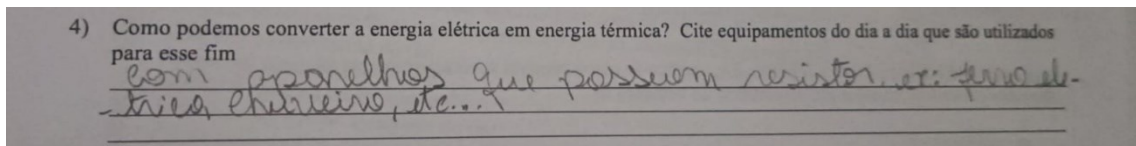 4) Como podemos converter a energia elétrica em energia térmica? Cite equipamentos do dia a dia que são utilizados
para esse fim
com aparelhos que possuem resistor. ex: ferro elé-
trico, chuveiro, etc...